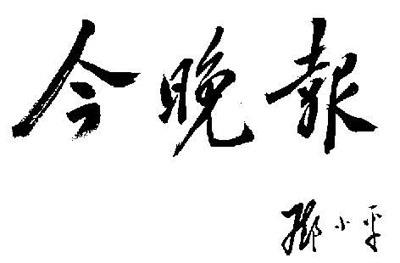 今晚報
鄧小平